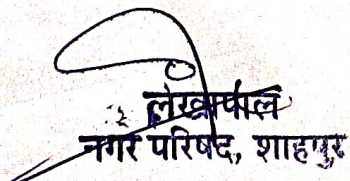 लेखापाल
नगर परिषद, शाहपुर